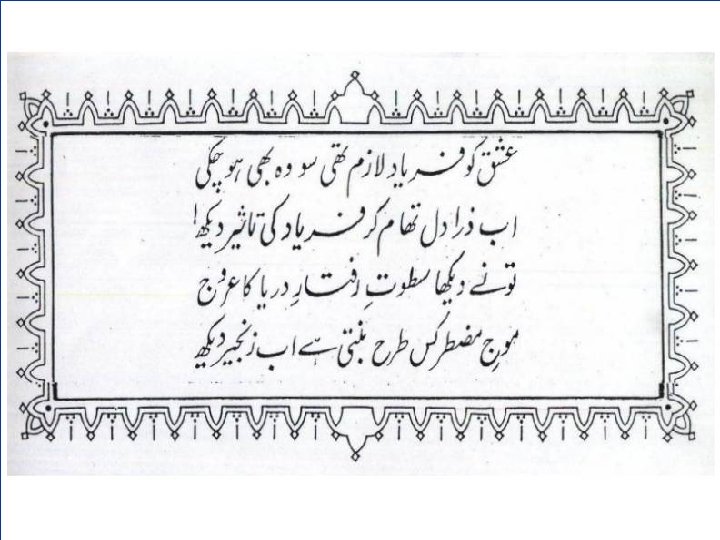 عشق کو فریاد لازم تھی سو وہ بھی ہو چکی
اب ذرا دل تھام کر فریاد کی تاثیر دیکھ!
تو نے دیکھا سطوتِ رفتارِ دریا کا عروج
موجِ مضطر کس طرح بنتی ہے اب زنجیر دیکھ